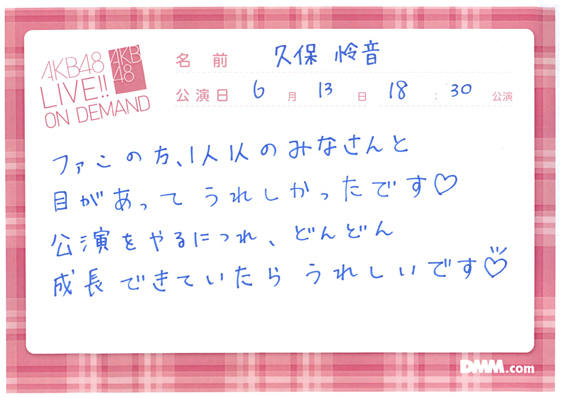 AKB48
LIVE!!
ON DEMAND
AKB
48
名前 久保 怜音
公演日 6月 13日 18:30 公演
ファンの方、1人1人のみなさんと
目があって うれしかったです♡
公演をやるにつれ、どんどん
成長できていたら うれしいです♡
DMM.com